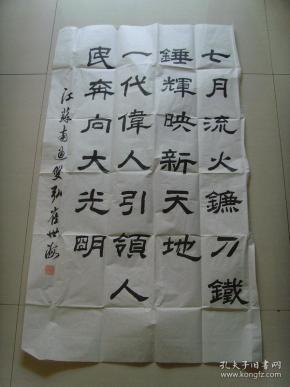 七月流火鐮刀鐵
錘輝映新天地
一代偉人引領人
民奔向大光明
江蘇南通
孔夫子旧书网